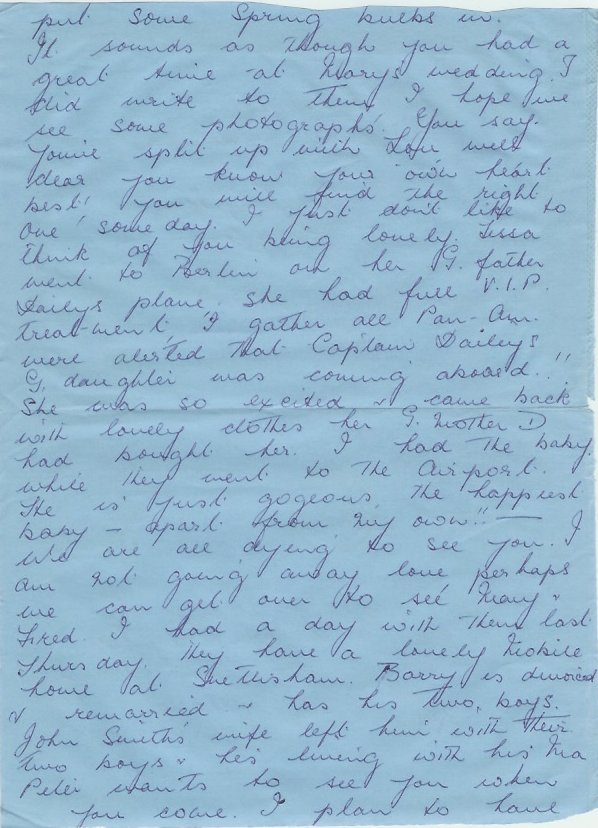 put some Spring bulbs in.
It sounds as though you had a
great time at Marys wedding. I
did write to them I hope we
see some photographs. You say
youve split up with well
dear you know your own heart
best! you will find the right
one some day. I just don't like to
think of you being lonely. Lissa
went to Berlin on her G. father
Dailys plane. She had full V.I.P.
treatment I gather all Pan-Am.
were alerted that Captain Daileys
G, daughter was coming aboard.!!
She was so excited & came back
with lovely clothes her G. Mother D
had bought her. I had the baby
while they went to the Airport.
He is just gogeous, the happiest
baby - apart from my own!! — I
We are all dying to see you. I
am not going away love perhaps
we can get over to see Mary &
Fred. I had a day with them last
Thursday. They have a lovely Mobile
home at Snettisham. Barry is divorced
& remarried & has his two, boys.
John Smiths wife left him with their
two boys & he's living with his Ma
Peter wants to see you when
you come. I plan to have